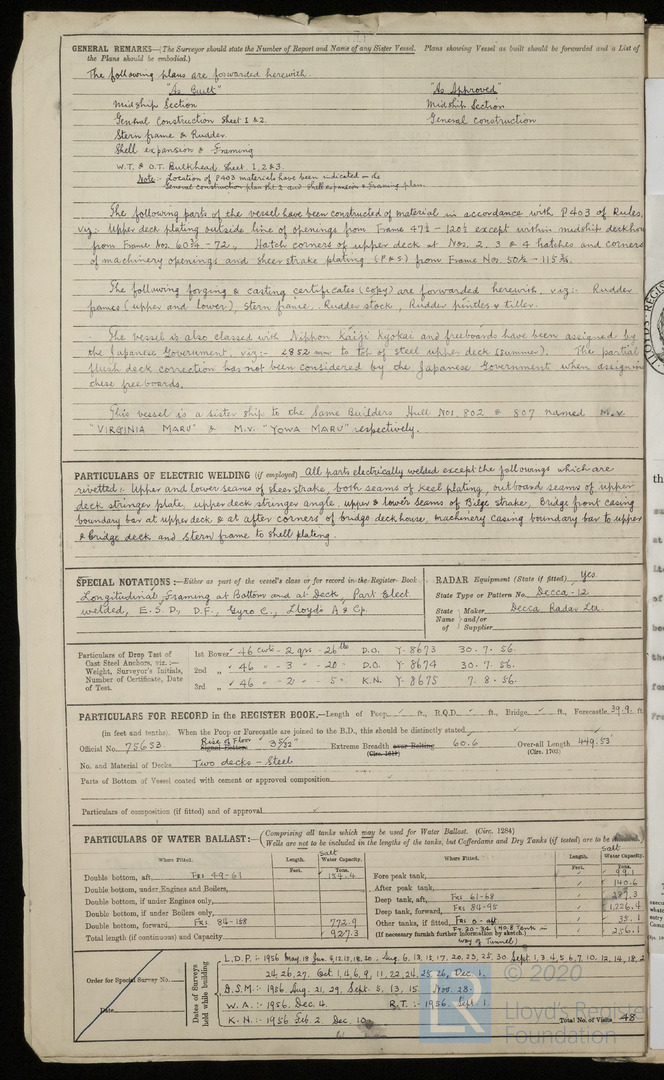 GENERAL REMARKS—(The Surveyor should state the Number of Report and Name of any Sister Vessel. Plans showing Vessel as built should be forwarded and a List of
the Plans should be embodied.)
The following plans are forwarded herewith.
"As Built" "As Approved"
Midship Section Midship Section
General Construction Sheet 1 & 2. General Construction
Stern frame & Rudder
Shell expansion & Framing
W.T. & O.T. Bulkhead Sheet 1, 2 & 3.
Note:- Location of P403 materials have been indicated in the
General construction plan sht 2 and shell expansion & framing plan.
The following parts of the vessel have been constructed of material in accordance with P403 of Rules,
viz:- Upper deck plating outside line of openings from Frame 47½ - 120½ except within midship deckhou
from Frame Nos. 60¾ - 72, Hatch corners of upper deck at Nos. 2, 3 & 4 hatches and corners
of machinery openings and sheer strake plating (P & S) from Frame Nos. 50½ - 115¾.
The following forging & casting certificates (copy) are forwarded herewith, viz:- Rudder
frames (upper and lower), stern frame, Rudder stock, Rudder pintles & tiller.
The vessel is also classed with Nippon Kaiji Kyokai and freeboards have been assigned by
the Japanese Government, viz:- 2852 mm to top of steel upper deck (summer). The partial
flush deck correction has not been considered by the Japanese Government when assignin
these freeboards.
This vessel is a sister ship to the same Builders Hull Nos. 802 & 807 named M.V.
"VIRGINIA MARU" & M.V. "YOWA MARU" respectively.
PARTICULARS OF ELECTRIC WELDING (if employed) All parts electrically welded except the followings which are
rivetted:- Upper and lower seams of sheer strake, both seams of keel plating, outboard seams of upper
deck stringer plate, upper deck stringer angle, upper & lower seams of Bilge strake, Bridge front casing
boundary bar at upper deck & at after corners of bridge deck house, machinery casing boundary bar to upper
& bridge deck and stern frame to shell plating.
SPECIAL NOTATIONS:—Either as part of the vessel's class or for record in the Register Book
Longitudinal Framing at Bottom and at Deck, Part Elect
welded, E.S.D., D.F., Gyro C., Lloyd's A & Cp.
RADAR Equipment (State if fitted) Yes
State Type or Pattern No. Decca-12
State Name of Maker and/or Supplier Decca Radar Ltd.
Particulars of Drop Test of
Cast Steel Anchors, viz.:—
Weight, Surveyor's Initials,
Number of Certificate, Date
of Test.
1st Bower 46 cwts - 2 qrs - 26 lbs D.O. Y-8673 30.7.56.
2nd " 46 " - 3 " - 20 " D.O. Y-8674 30.7.56.
3rd " 46 " - 2 " - 5 " K.N. Y-8675 7.8.56.
PARTICULARS FOR RECORD in the REGISTER BOOK.—Length of Poop ft., R.Q.D. ft., Bridge ft., Forecastle 39.9 ft.
(in feet and tenths). When the Poop or Forecastle are joined to the B.D., this should be distinctly stated
Official No. 75653. Rise of Floor Extreme Breadth over Belting (Circ. 1611) 60.6 Over-all Length (Circ. 1703) 449.53'
No. and Material of Decks Two decks - Steel
Parts of Bottom of Vessel coated with cement or approved composition
Particulars of composition (if fitted) and of approval
PARTICULARS OF WATER BALLAST:—(Comprising all tanks which may be used for Water Ballast. (Circ. 1284)
Wells are not to be included in the lengths of the tanks, but Cofferdams and Dry Tanks (if tested) are to be
Where Fitted. Length. Feet. Salt Water Capacity. Tons. Where Fitted. Length. Feet. Salt Water Capacity. Tons.
Double bottom, aft, Frs 49-61 154.4 Fore peak tank, 99.1
Double bottom, under Engines and Boilers, After peak tank, 140.6
Double bottom, if under Engines only, Deep tank, aft, Frs 61-68 287.3
Double bottom, if under Boilers only, Deep tank, forward, Frs 84-95 1,226.4
Double bottom, forward, Frs 84-158 772.9 Other tanks, if fitted, Frs 0-aft 35.1
Total length (if continuous) and Capacity 927.3 (If necessary furnish further information by sketch.) Fr. 20-34 (No.8 Tank in way of Tunnel) 256.1
Order for Special Survey No.
Date
Dates of Surveys held while building
L.D.P.:- 1956 May. 18 Jun. 5, 12, 15, 18, 20, Aug. 6, 13, 15, 17, 20, 23, 25, 30 Sept. 1, 3, 4, 5, 6, 7, 10, 12, 14, 18, 2
24, 26, 27, Oct. 1, 4, 6, 9, 11, 22, 24, 25, 26, Dec. 1.
D.S.M:- 1956 Aug. 21, 29, Sept. 5, 13, 15. Nov. 28.
W.A.:- 1956. Dec. 4. R.T.:- 1956. Sept. 1.
K.N:- 1956 Feb. 2. Dec. 10. Total No. of Visits 48
© 2020
Lloyd's Register
Foundation